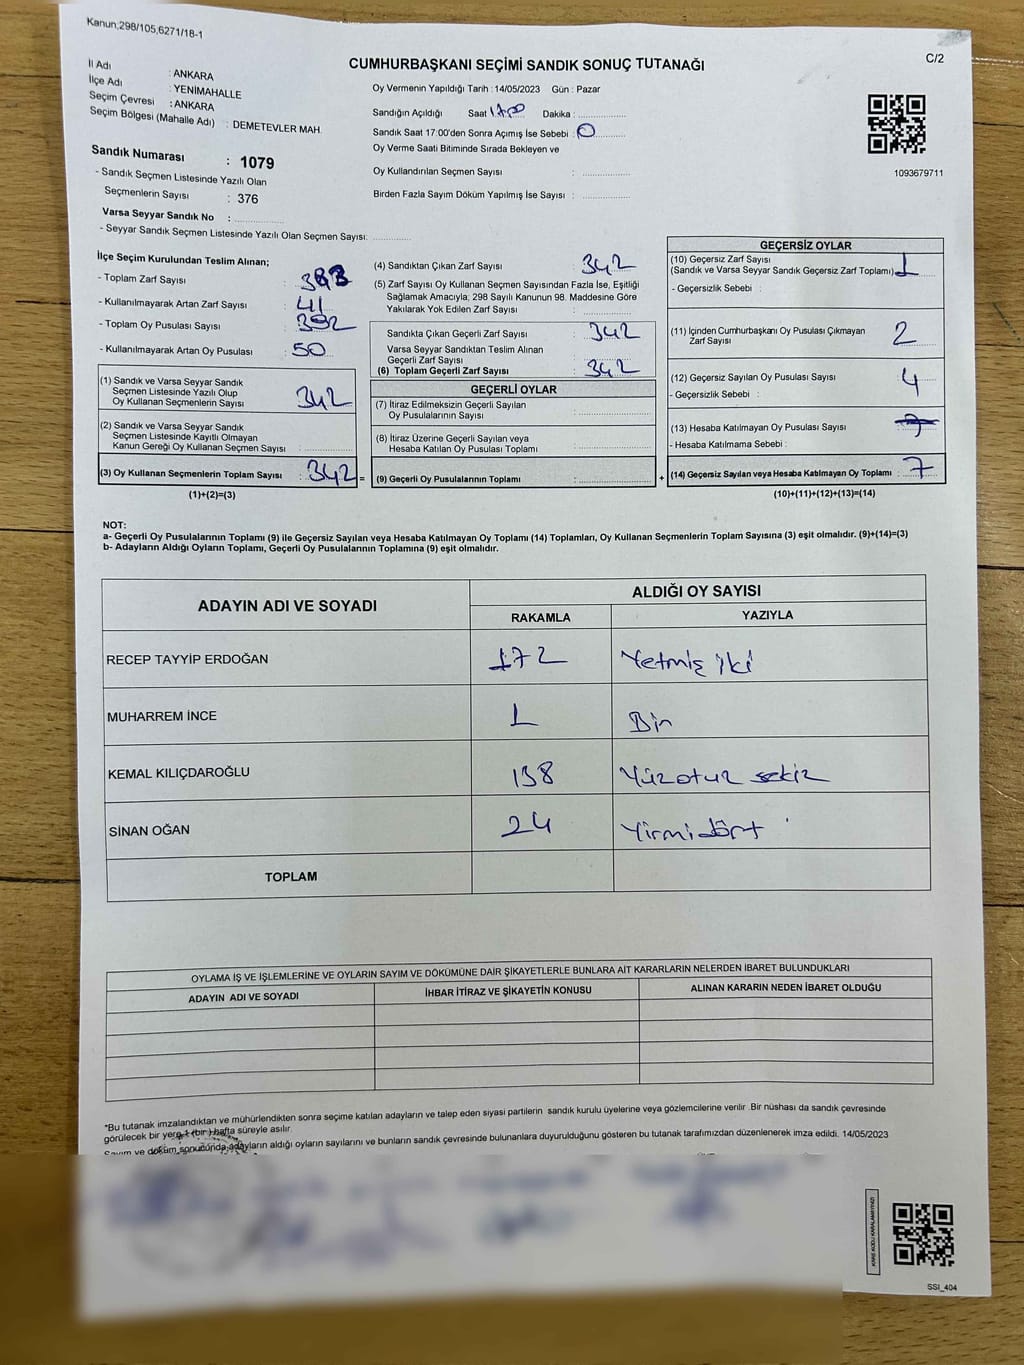 Kanun;298/105,6271/18-1
C/2
CUMHURBAŞKANI SEÇİMİ SANDIK SONUÇ TUTANAĞI
İl Adı : ANKARA
İlçe Adı : YENİMAHALLE
Seçim Çevresi : ANKARA
Seçim Bölgesi (Mahalle Adı) : DEMETEVLER MAH.
Sandık Numarası : 1079
- Sandık Seçmen Listesinde Yazılı Olan
Seçmenlerin Sayısı : 376
Varsa Seyyar Sandık No :
- Seyyar Sandık Seçmen Listesinde Yazılı Olan Seçmen Sayısı:
Oy Vermenin Yapıldığı Tarih : 14/05/2023 Gün : Pazar
Sandığın Açıldığı Saat 17.00 Dakika :
Sandık Saat 17:00'den Sonra Açımış İse Sebebi : 0
Oy Verme Saati Bitiminde Sırada Bekleyen ve
Oy Kullandırılan Seçmen Sayısı :
Birden Fazla Sayım Döküm Yapılmış İse Sayısı :
1093679711
İlçe Seçim Kurulundan Teslim Alınan;
- Toplam Zarf Sayısı : 383
- Kullanılmayarak Artan Zarf Sayısı : 41
- Toplam Oy Pusulası Sayısı : 392
- Kullanılmayarak Artan Oy Pusulası : 50
(1) Sandık ve Varsa Seyyar Sandık
Seçmen Listesinde Yazılı Olup
Oy Kullanan Seçmenlerin Sayısı : 342
(2) Sandık ve Varsa Seyyar Sandık
Seçmen Listesinde Kayıtlı Olmayan
Kanun Gereği Oy Kullanan Seçmen Sayısı :
(3) Oy Kullanan Seçmenlerin Toplam Sayısı : 342 =
(1)+(2)=(3)
(4) Sandıktan Çıkan Zarf Sayısı : 342
(5) Zarf Sayısı Oy Kullanan Seçmen Sayısından Fazla İse, Eşitliği
Sağlamak Amacıyla; 298 Sayılı Kanunun 98. Maddesine Göre
Yakılarak Yok Edilen Zarf Sayısı :
Sandıkta Çıkan Geçerli Zarf Sayısı : 342
Varsa Seyyar Sandıktan Teslim Alınan
Geçerli Zarf Sayısı :
(6) Toplam Geçerli Zarf Sayısı : 342
GEÇERLİ OYLAR
(7) İtiraz Edilmeksizin Geçerli Sayılan
Oy Pusulalarının Sayısı :
(8) İtiraz Üzerine Geçerli Sayılan veya
Hesaba Katılan Oy Pusulası Toplamı :
(9) Geçerli Oy Pusulalarının Toplamı : +
GEÇERSİZ OYLAR
(10) Geçersiz Zarf Sayısı
(Sandık ve Varsa Seyyar Sandık Geçersiz Zarf Toplamı) : 1
- Geçersizlik Sebebi :
(11) İçinden Cumhurbaşkanı Oy Pusulası Çıkmayan
Zarf Sayısı : 2
(12) Geçersiz Sayılan Oy Pusulası Sayısı : 4
- Geçersizlik Sebebi :
(13) Hesaba Katılmayan Oy Pusulası Sayısı : 7
- Hesaba Katılmama Sebebi :
(14) Geçersiz Sayılan veya Hesaba Katılmayan Oy Toplamı : 7
(10)+(11)+(12)+(13)=(14)
NOT:
a- Geçerli Oy Pusulalarının Toplamı (9) ile Geçersiz Sayılan veya Hesaba Katılmayan Oy Toplamı (14) Toplamları, Oy Kullanan Seçmenlerin Toplam Sayısına (3) eşit olmalıdır. (9)+(14)=(3)
b- Adayların Aldığı Oyların Toplamı, Geçerli Oy Pusulalarının Toplamına (9) eşit olmalıdır.
ADAYIN ADI VE SOYADI
ALDIĞI OY SAYISI
RAKAMLA YAZIYLA
RECEP TAYYİP ERDOĞAN 172 Yetmiş iki
MUHARREM İNCE 1 Bir
KEMAL KILIÇDAROĞLU 138 Yüzotuz sekiz
SİNAN OĞAN 24 Yirmidört
TOPLAM
OYLAMA İŞ VE İŞLEMLERİNE VE OYLARIN SAYIM VE DÖKÜMÜNE DAİR ŞİKAYETLERLE BUNLARA AİT KARARLARIN NELERDEN İBARET BULUNDUKLARI
ADAYIN ADI VE SOYADI İHBAR İTİRAZ VE ŞİKAYETİN KONUSU ALINAN KARARIN NEDEN İBARET OLDUĞU
*Bu tutanak imzalandıktan ve mühürlendikten sonra seçime katılan adayların ve talep eden siyasi partilerin sandık kurulu üyelerine veya gözlemcilerine verilir .Bir nüshası da sandık çevresinde
görülecek bir yere 1 (bir) hafta süreyle asılır.
Sayım ve döküm sonucunda adayların aldığı oyların sayılarını ve bunların sandık çevresinde bulunanlara duyurulduğunu gösteren bu tutanak tarafımızdan düzenlenerek imza edildi. 14/05/2023
KARE KODU KARALAMAYINIZ!
SSI_404